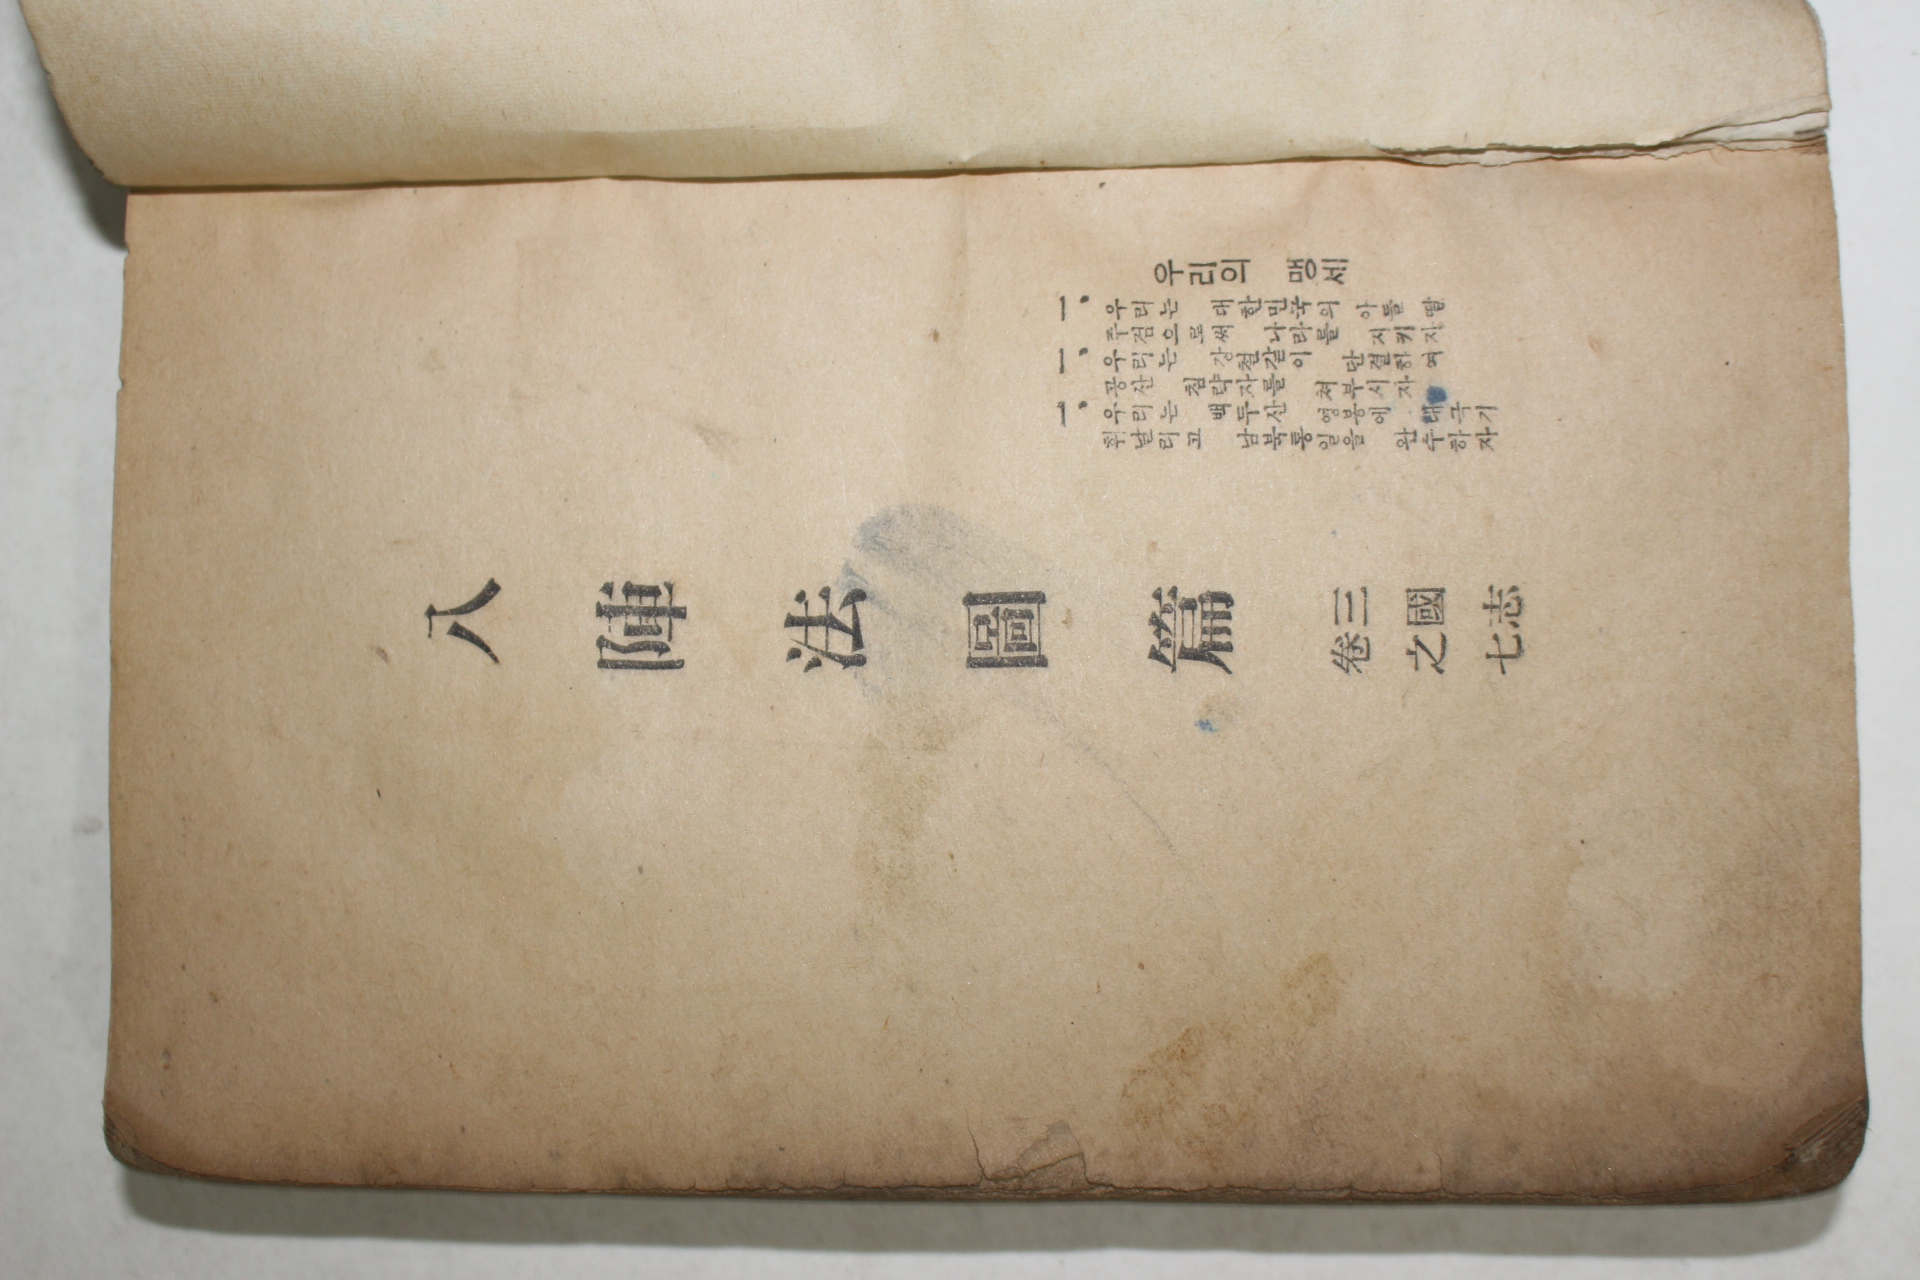 우리의 맹세
一、우리는 대한민국의 아들 딸
주검으로써 나라를 지키자
一、우리는 강철같이 단결하여
공산 침략자를 쳐부시자
一、우리는 백두산 영봉에 태극기
휘날리고 남북통일을 완수하자
八陣法圖篇
三國志
卷之七